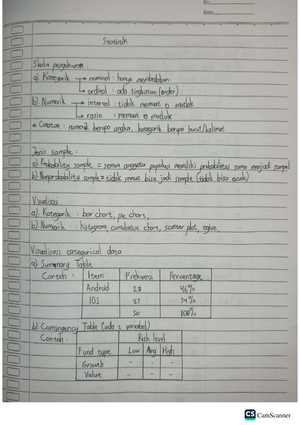 No:
Date:
Statistik
Skala pengukuran :
a) Kategorik → nominal : hanya membedakan
↳ ordinal : ada tingkatan (order)
b) Numerik → interval : tidak memuat 0 mutlak
↳ rasio : memuat 0 mutlak
* Catatan : numerik berupa angka, kategorik berupa huruf/kalimat
Jenis sample :
a) Probability sample = semua anggota populasi memiliki probabilitas sama menjadi sampel
b) Nonprobability sample = tidak semua bisa jadi sample (tidak bisa acak)
Visualisasi
a) Kategorik : bar chart, pie chart,
b) Numerik : histogram, cumulative chart, scatter plot, ogive,
Visualisasi categorical data
a) Summary Table
Contoh : Item Frekuensi Percentage
Android 23 46%
IOS 27 54%
50 100%
b) Contingency Table (ada 2 variabel)
Contoh : Risk level
Fund type Low Avg High
Growth - - -
Value - - -
CS CamScanner